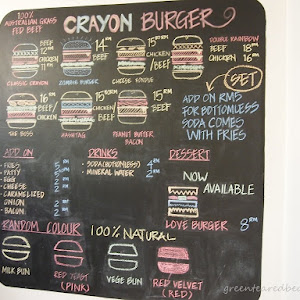 100%
AUSTRALIAN GRASS
FED BEEF
CRAYON BURGER
BEEF 12 RM
CHICKEN
CLASSIC CRAYON
14 RM
BEEF
ZOMBIE BURGER
15 RM
BEEF/
CHICKEN
CHEESE FONDUE
DOUBLE RAINBOW
BEEF 18 RM
CHICKEN 16 RM
SET
THE BOSS
15 RM
BEEF
HASHTAG
15 RM
BEEF/
CHICKEN
PEANUT BUTTER
BACON
ADD ON RM5
FOR BOTTOMLESS
SODA COMES
WITH FRIES
ADD ON
- FRIES
- PATTY
- EGG
- CHEESE
- CARAMELIZED
ONION
- BACON
DRINKS
- SODA (BOTTOMLESS) 4 RM
- MINERAL WATER 2 RM
DESSERT
NOW
AVAILABLE
LOVE BURGER 8 RM
RANDOM COLOUR
100% NATURAL
MILK BUN
RED YEAST
(PINK)
VEGE BUN
RED VELVET
(RED)